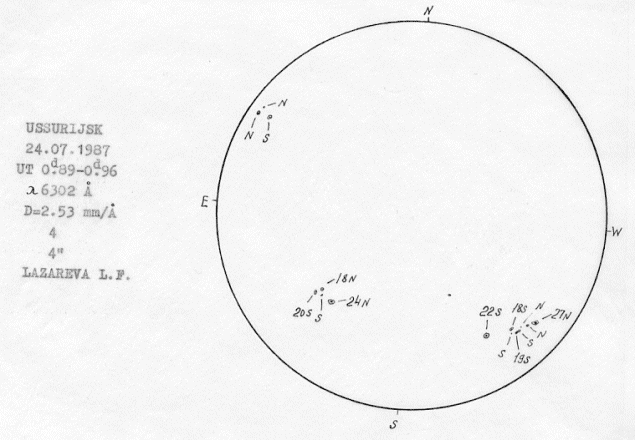 N
N
N
S
USSURIJSK
24.07.1987
UT 0ᵈ.89-0ᵈ.96
λ 6302 Å
D=2.53 mm/Å
4
4"
LAZAREVA L.F.
E
W
18N
20S
S
24N
22S
18S
N
27N
S
19S
S
N
S